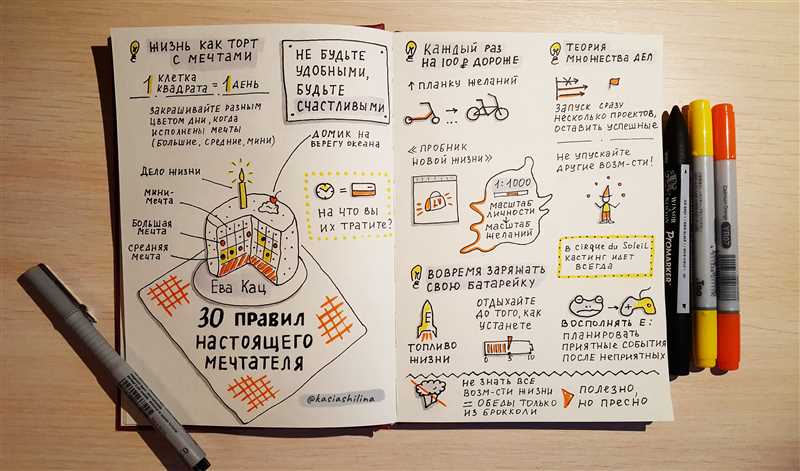 ЖИЗНЬ КАК ТОРТ
С МЕЧТАМИ
1 КЛЕТКА
КВАДРАТА = 1 ДЕНЬ
ЗАКРАШИВАЙТЕ РАЗНЫМ
ЦВЕТОМ ДНИ, КОГДА
ИСПОЛНЕНЫ МЕЧТЫ
(БОЛЬШИЕ, СРЕДНИЕ, МИНИ)
НЕ БУДЬТЕ
УДОБНЫМИ,
БУДЬТЕ
СЧАСТЛИВЫМИ
ДОМИК НА
БЕРЕГУ ОКЕАНА
ДЕЛО ЖИЗНИ
МИНИ-
МЕЧТА
БОЛЬШАЯ
МЕЧТА
СРЕДНЯЯ
МЕЧТА
=
НА ЧТО ВЫ
ИХ ТРАТИТЕ?
ЕВА КАЦ
30 ПРАВИЛ
НАСТОЯЩЕГО
МЕЧТАТЕЛЯ
@kasiashilina
КАЖДЫЙ РАЗ
НА 100 ₽ ДОРОЖЕ
↑ ПЛАНКУ ЖЕЛАНИЙ
«ПРОБНИК
НОВОЙ ЖИЗНИ»
1:1000
МАСШТАБ
ЛИЧНОСТИ
=
МАСШТАБ
ЖЕЛАНИЙ
ТЕОРИЯ
МНОЖЕСТВА ДЕЛ
ЗАПУСК СРАЗУ
НЕСКОЛЬКО ПРОЕКТОВ,
ОСТАВИТЬ УСПЕШНЫЕ
НЕ УПУСКАЙТЕ
ДРУГИЕ ВОЗМ-СТИ!
В CIRQUE du SOLEIL
КАСТИНГ ИДЕТ
ВСЕГДА
ВОВРЕМЯ ЗАРЯЖАТЬ
СВОЮ БАТАРЕЙКУ
E
ТОПЛИВО
ЖИЗНИ
ОТДЫХАЙТЕ
ДО ТОГО, КАК
УСТАНЕТЕ
0 5 10
ВОСПОЛНЯТЬ E:
ПЛАНИРОВАТЬ
ПРИЯТНЫЕ СОБЫТИЯ
ПОСЛЕ НЕПРИЯТНЫХ
НЕ ЗНАТЬ ВСЕ
ВОЗМ-СТИ ЖИЗНИ
= ОБЕДЫ ТОЛЬКО
ИЗ БРОККОЛИ
ПОЛЕЗНО,
НО ПРЕСНО
WINSOR
PROMARKER